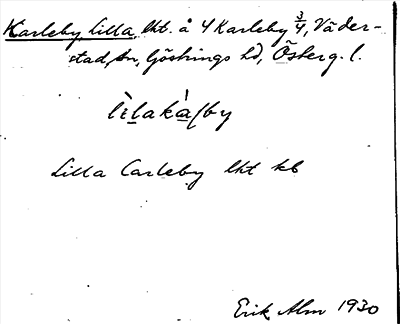 Karleby Lilla lht. å 4 Karleby 3/4, Väder-
stad sn, Göstrings hd, Österg. l.
Lilla Carleby lht kb
Erik Alm 1930